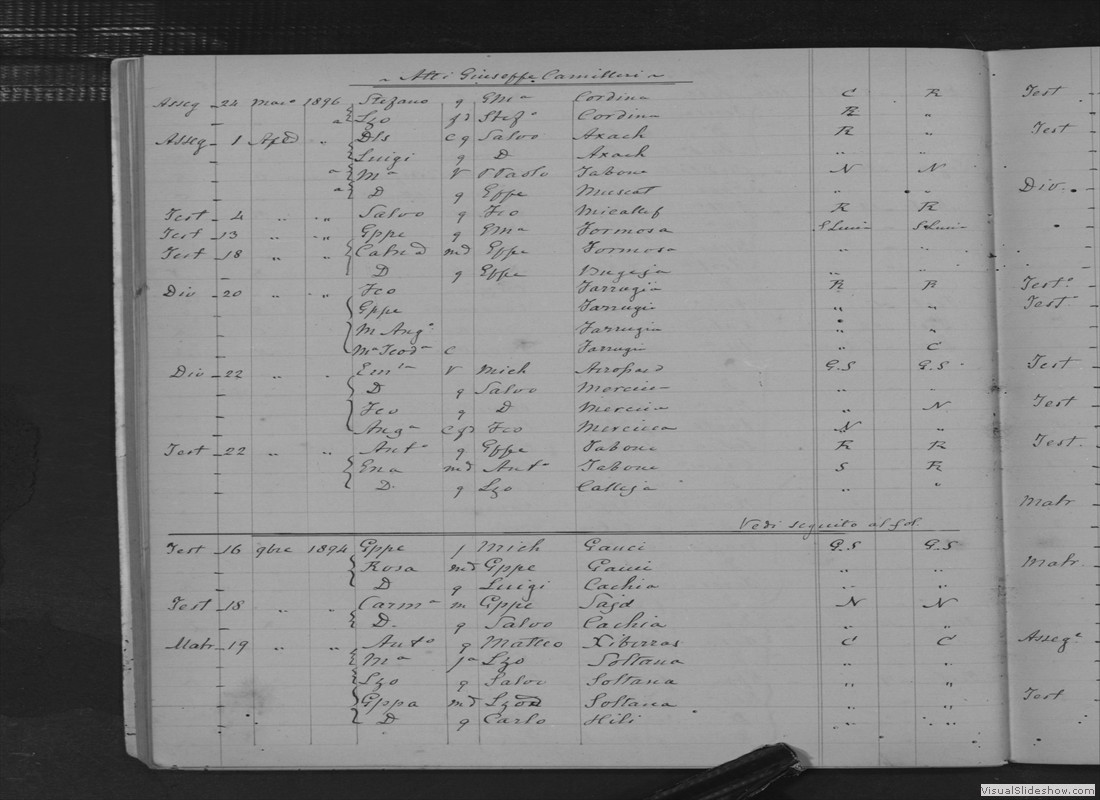 Atti Giuseppe Camilleri
Asseg 24 Marzo 1896 Stefano g Gma Cordina C R
a Lzo fs Stefo Cordina R "
Asseg 1 Aple " Dls c g Salvo Axach R "
Luigi g D Axach " "
a Ma V Paolo Tabone N N
a D g Gppe Muscat " "
Test 4 " " Salvo g Fco Micallef R R
Test 13 " " Gppe g Gma Formosa S Lucia S Lucia
Test 18 " " md Gppe Formosa " "
D g Gppe Bugeja " "
Div 20 " " Fco Farrugia R R
Gppe Farrugia " "
M Anga Farrugia " "
Ma Teoda C Farrugia " C
Div 22 " " V Mich G.S G.S
D g Salvo Mercieca " "
Fco g D Mercieca " N
Anga Fco Mercieca N "
Test 22 " " Anto g Gppe Tabone R R
md Anto Tabone S R
D. g Lzo Calleja " "
Vedi seguito al fol.
Test 16 9bre 1894 Gppe f Mich Gauci G.S G.S
Rosa md Gppe Gauci " "
D g Luigi Cachia " "
Test 18 " " Carma m Gppe Sajd N N
D. g Salvo Cachia " "
Matr 19 " " Anto g Matteo Xiberras C C
Ma fa Lzo Soltana " "
Lzo g Salvo Soltana " "
Gppa md Lzo Soltana " "
D g Carlo Hili " "
Test
Test
Div.
Testo
Test
Test
Test
Test.
Matr
Matr.
Assega
Test
VisualSlideshow.com